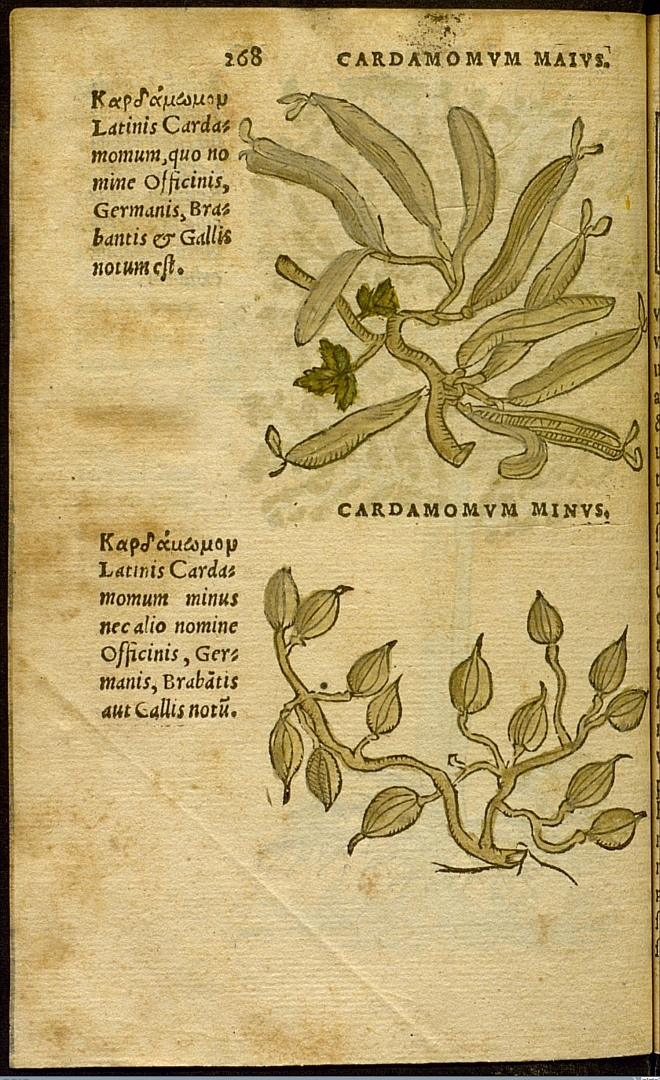 268
CARDAMOMVM MAIVS.
Καρδάμωμον
Latinis Carda⸗
momum, quo no
mine Officinis,
Germanis, Bra⸗
bantis & Gallis
notum est.
CARDAMOMVM MINVS.
Καρδάμωμον
Latinis Carda⸗
momum minus
nec alio nomine
Officinis, Ger⸗
manis, Brabātis
aut Gallis notū.